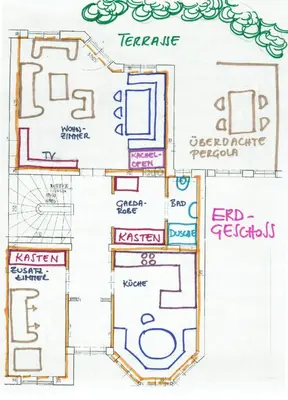 TERRASSE
WOHN-
ZIMMER
TV
KACHEL-
OFEN
ÜBERDACHTE
PERGOLA
GARDA-
ROBE
BAD
DUSCHE
KASTEN
ERD-
GESCHOSS
KASTEN
ZUSATZ-
ZIMMER
KÜCHE